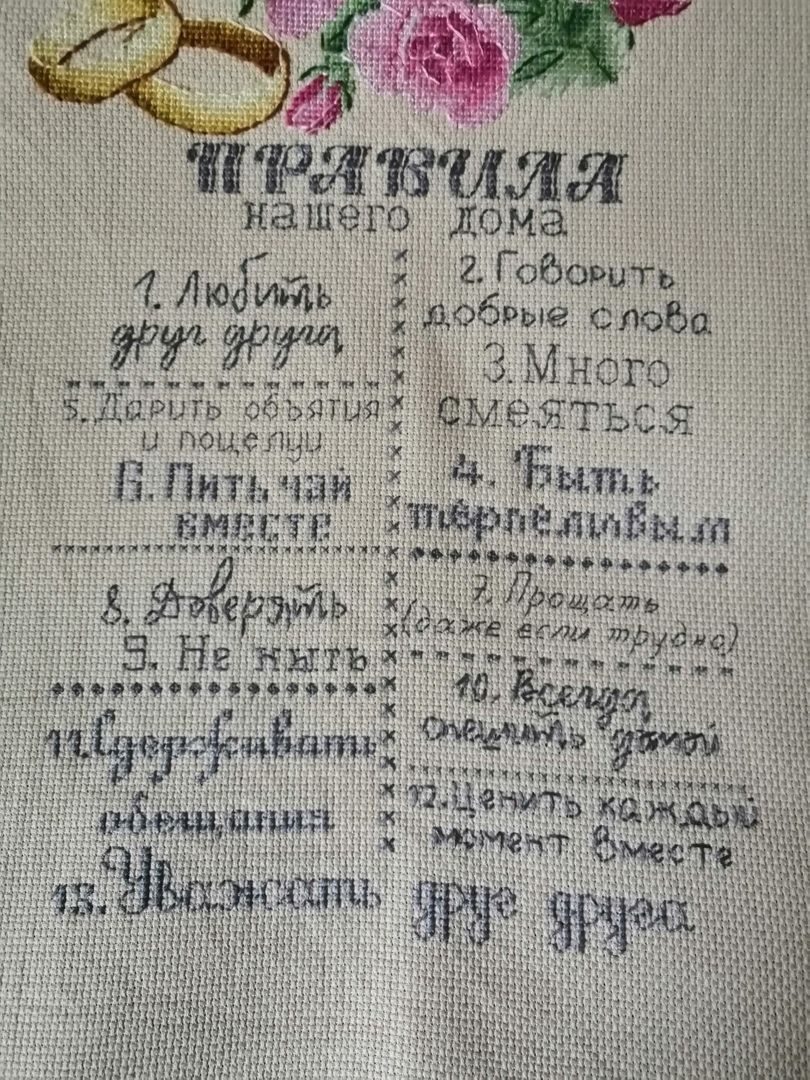 ПРАВИЛА
нашего дома
1. Любить
друг друга
2. Говорить
добрые слова
3. Много
смеяться
4. Быть
терпеливым
5. Дарить объятия
и поцелуи
6. Пить чай
вместе
7. Прощать
(даже если трудно)
8. Доверять
9. Не ныть
10. Всегда
спешить домой
11. Сдерживать
обещания
12. Ценить каждый
момент вместе
13. Уважать друг друга